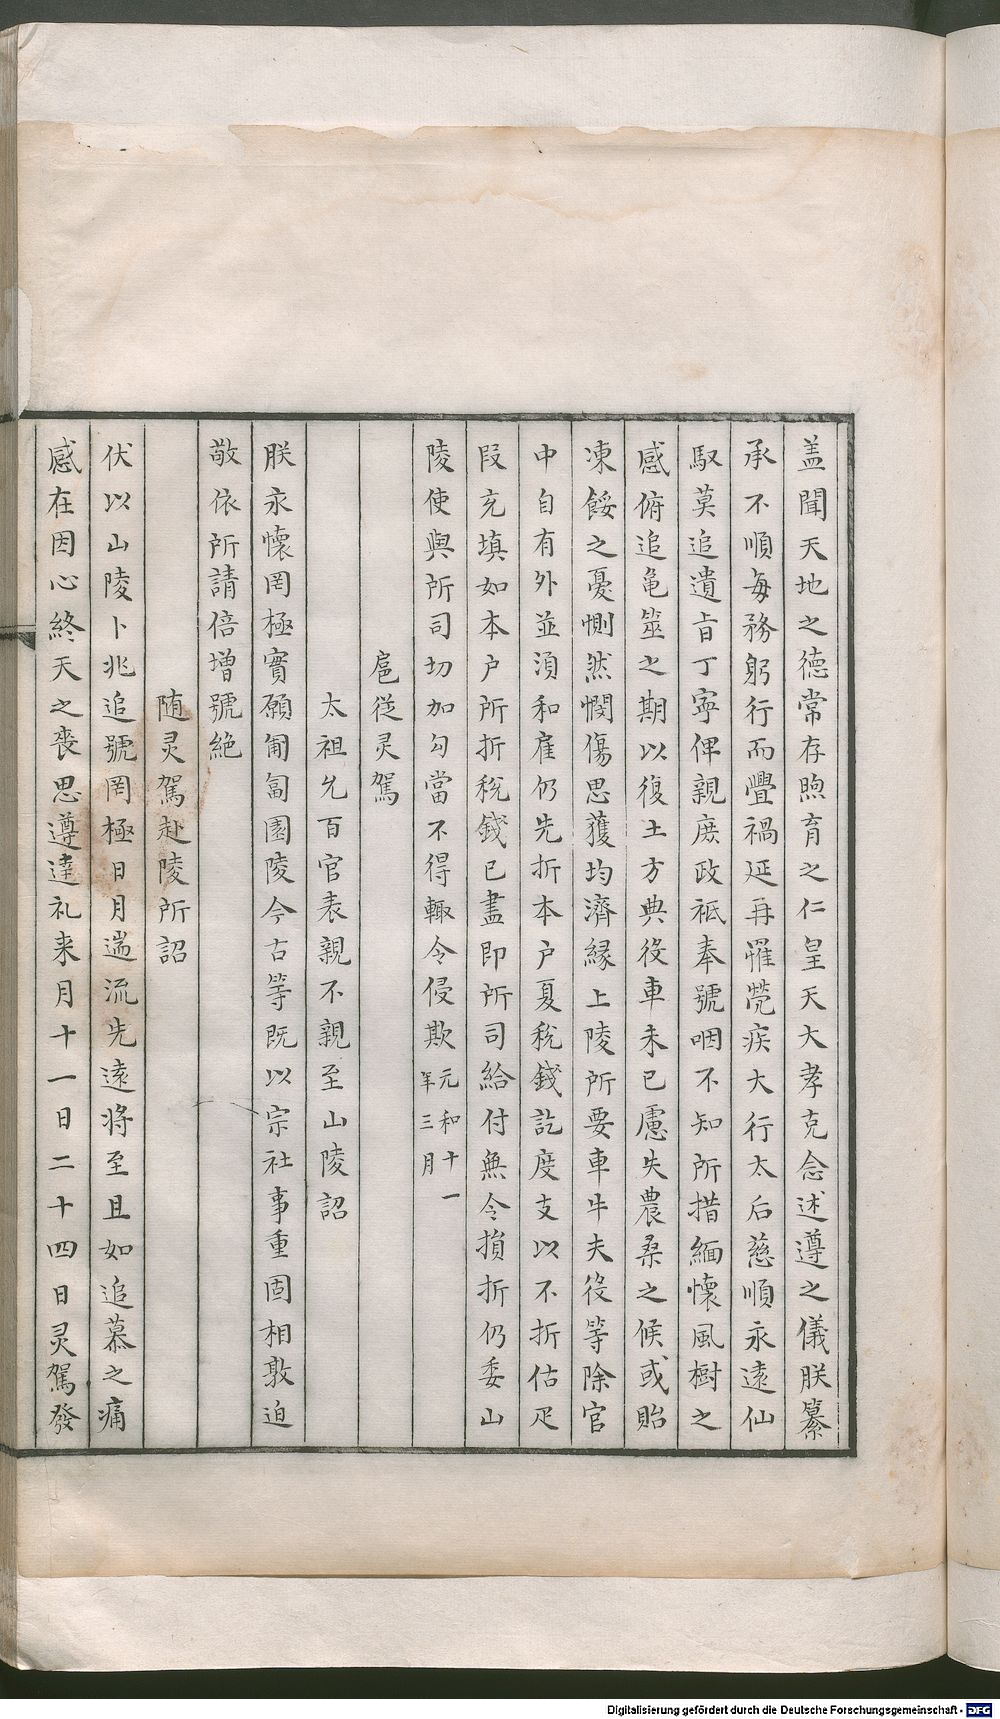 盖聞天地之德常存煦育之仁皇天大孝克念述遵之儀朕纂
承不順每務躬行而舋禍延再罹煢疾大行太后慈順永遠仙
馭莫追遺旨丁寧俾親庻政祗奉號咽不知所措緬懷風樹之
感俯追亀筮之期以復土方典役車未已慮失農桑之候或貽
凍餒之憂惻然憫傷思獲均濟縁上陵所要車牛夫役等除官
中自有外並湏和雇仍先折本户夏税錢訖度支以不折估疋
叚充填如本户所折税錢已盡即所司給付無令損折仍委山
陵使與所司切加勾當不得輙令侵欺元和十一
年三月
扈従灵駕
太祖允百官表親不親至山陵詔
朕永懷罔極實願匍匐園陵今古等既以宗社事重固相敦迫
敬依所請倍增號絶
随灵駕赴陵所詔
伏以山陵卜兆追號罔極日月遄流先逺將至且如追慕之痛
感在因心終天之喪思遵逹礼来月十一日二十四日灵駕發
Digitalisierung gefördert durch die Deutsche Forschungsgemeinschaft - DFG